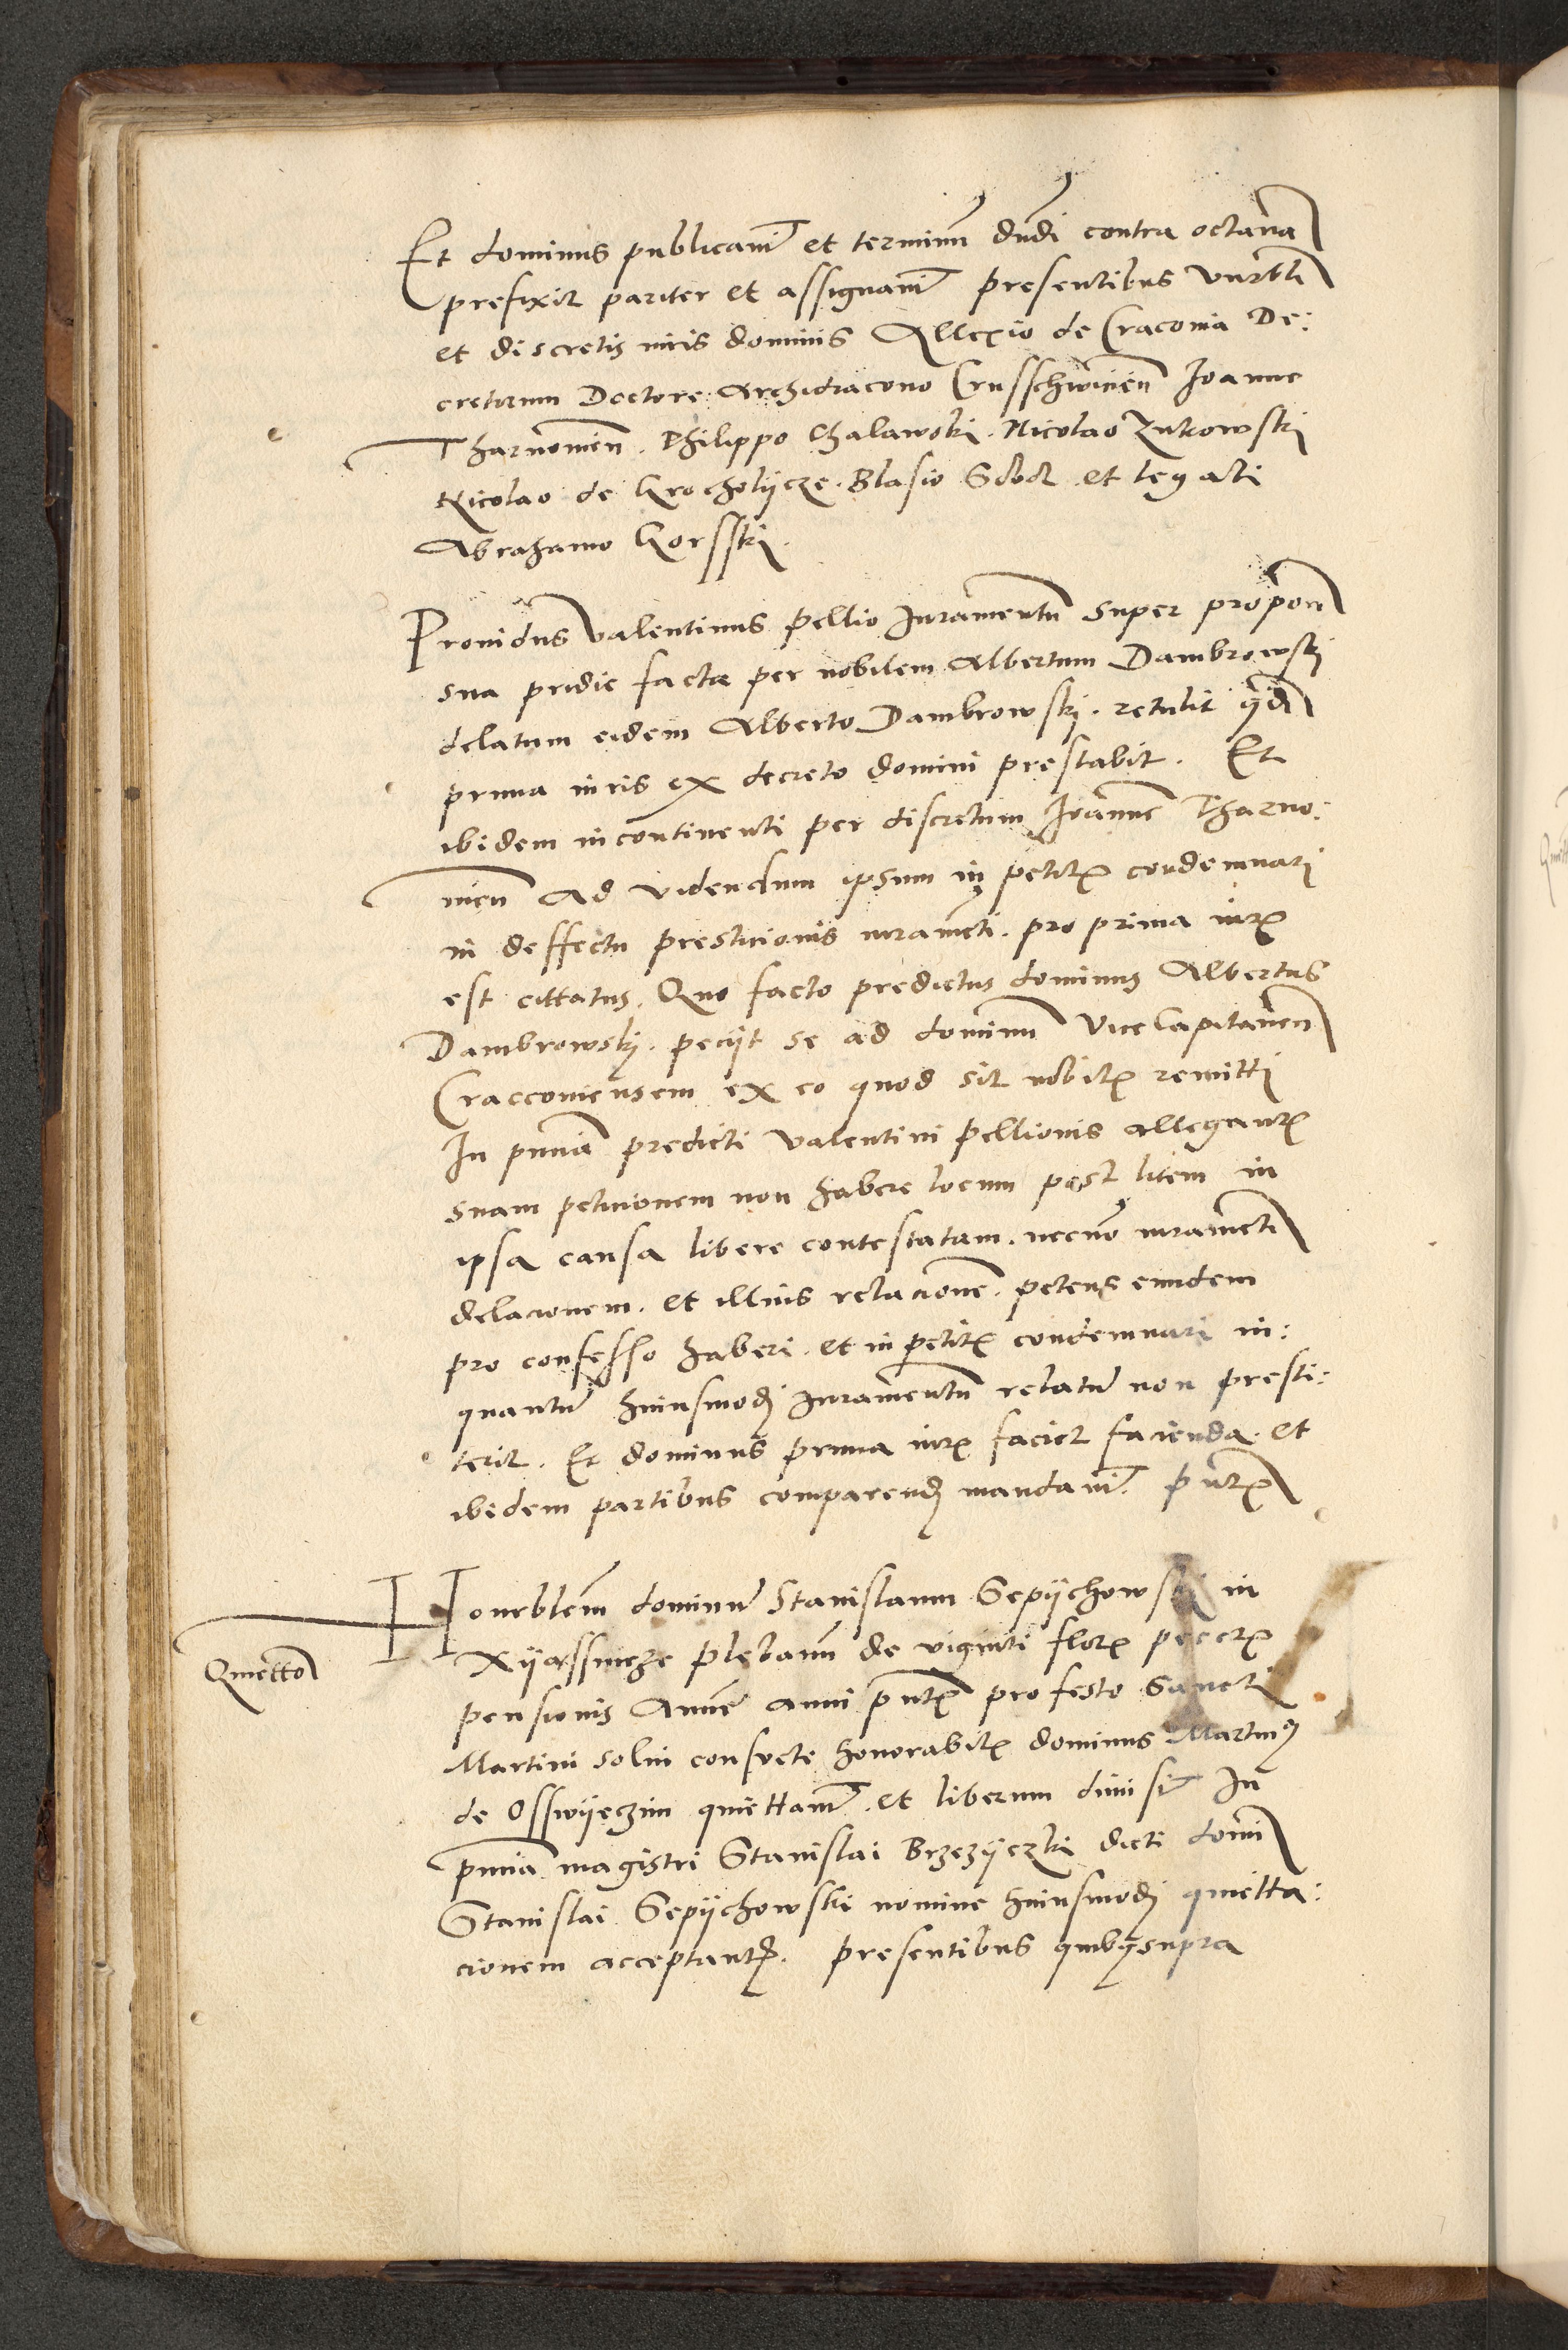 Et dominus publicavit et terminum dndi contra octava
prefixit pariter et assignavit presentibus Vnrbli
et discretis viris dominis Allexio de Craconia De:
cretorum Doctore Archidiacono Crusschwicien Joanne
Tharnowien. Philippo Chalawski. Nicolao Zukowski
Nicolao de Krocholycze. Blasio Scbcl et legati
Abrahamo Gorsski.
Providus Valentinus Pellio Juramentum super propon
sua pridie facta per nobilem Albertum Dambrowski
delatum eidem Alberto Dambrowski. retulit quod
prima iuris ex decreto domini prestabit. Et
ibidem incontinenti per discretum Joannem Tharno:
wien Ad videndum ipsum in petitis condemnari
in deffectu presticionis iuramenti. pro prima iuris
est cittatus. Quo facto predictus dominus Albertus
Dambrowski. peciit se ad dominum Vicecapitaneum
Cracconiensem ex eo quod sit nobilis remitti
In pncia predicti Valentini Pellionis allegantis
suam peticionem non habere locum post litem in
ipsa causa libere contestatam. necno iuramenti
delacionem. et illius relacionem. petens eundem
pro confesso haberi. et in petitis condemnari in:
quantum huiusmodi Juramentum relatum non presti:
terit. Et dominus prima iuris faciet facienda. et
ibidem partibus comparendi mandavit. Pntibus
Honrblem dominum Stanislaum Sepijchowski in
Xijasssnicze plebanum de viginti florenis pecunie
pensionis Annue anni pntis pro festo Sancti
Martini solui consvete honorabilis dominus Martinus
de Osswijeczim quiettavit. et liberum dimisit In
pncia magistri Stanislai Brzezijczki dicti domini
Stanislai Sepijchowski nomine huiusmodi quietta:
cionem acceptantis. presentibus quibus supra
Quiettatio